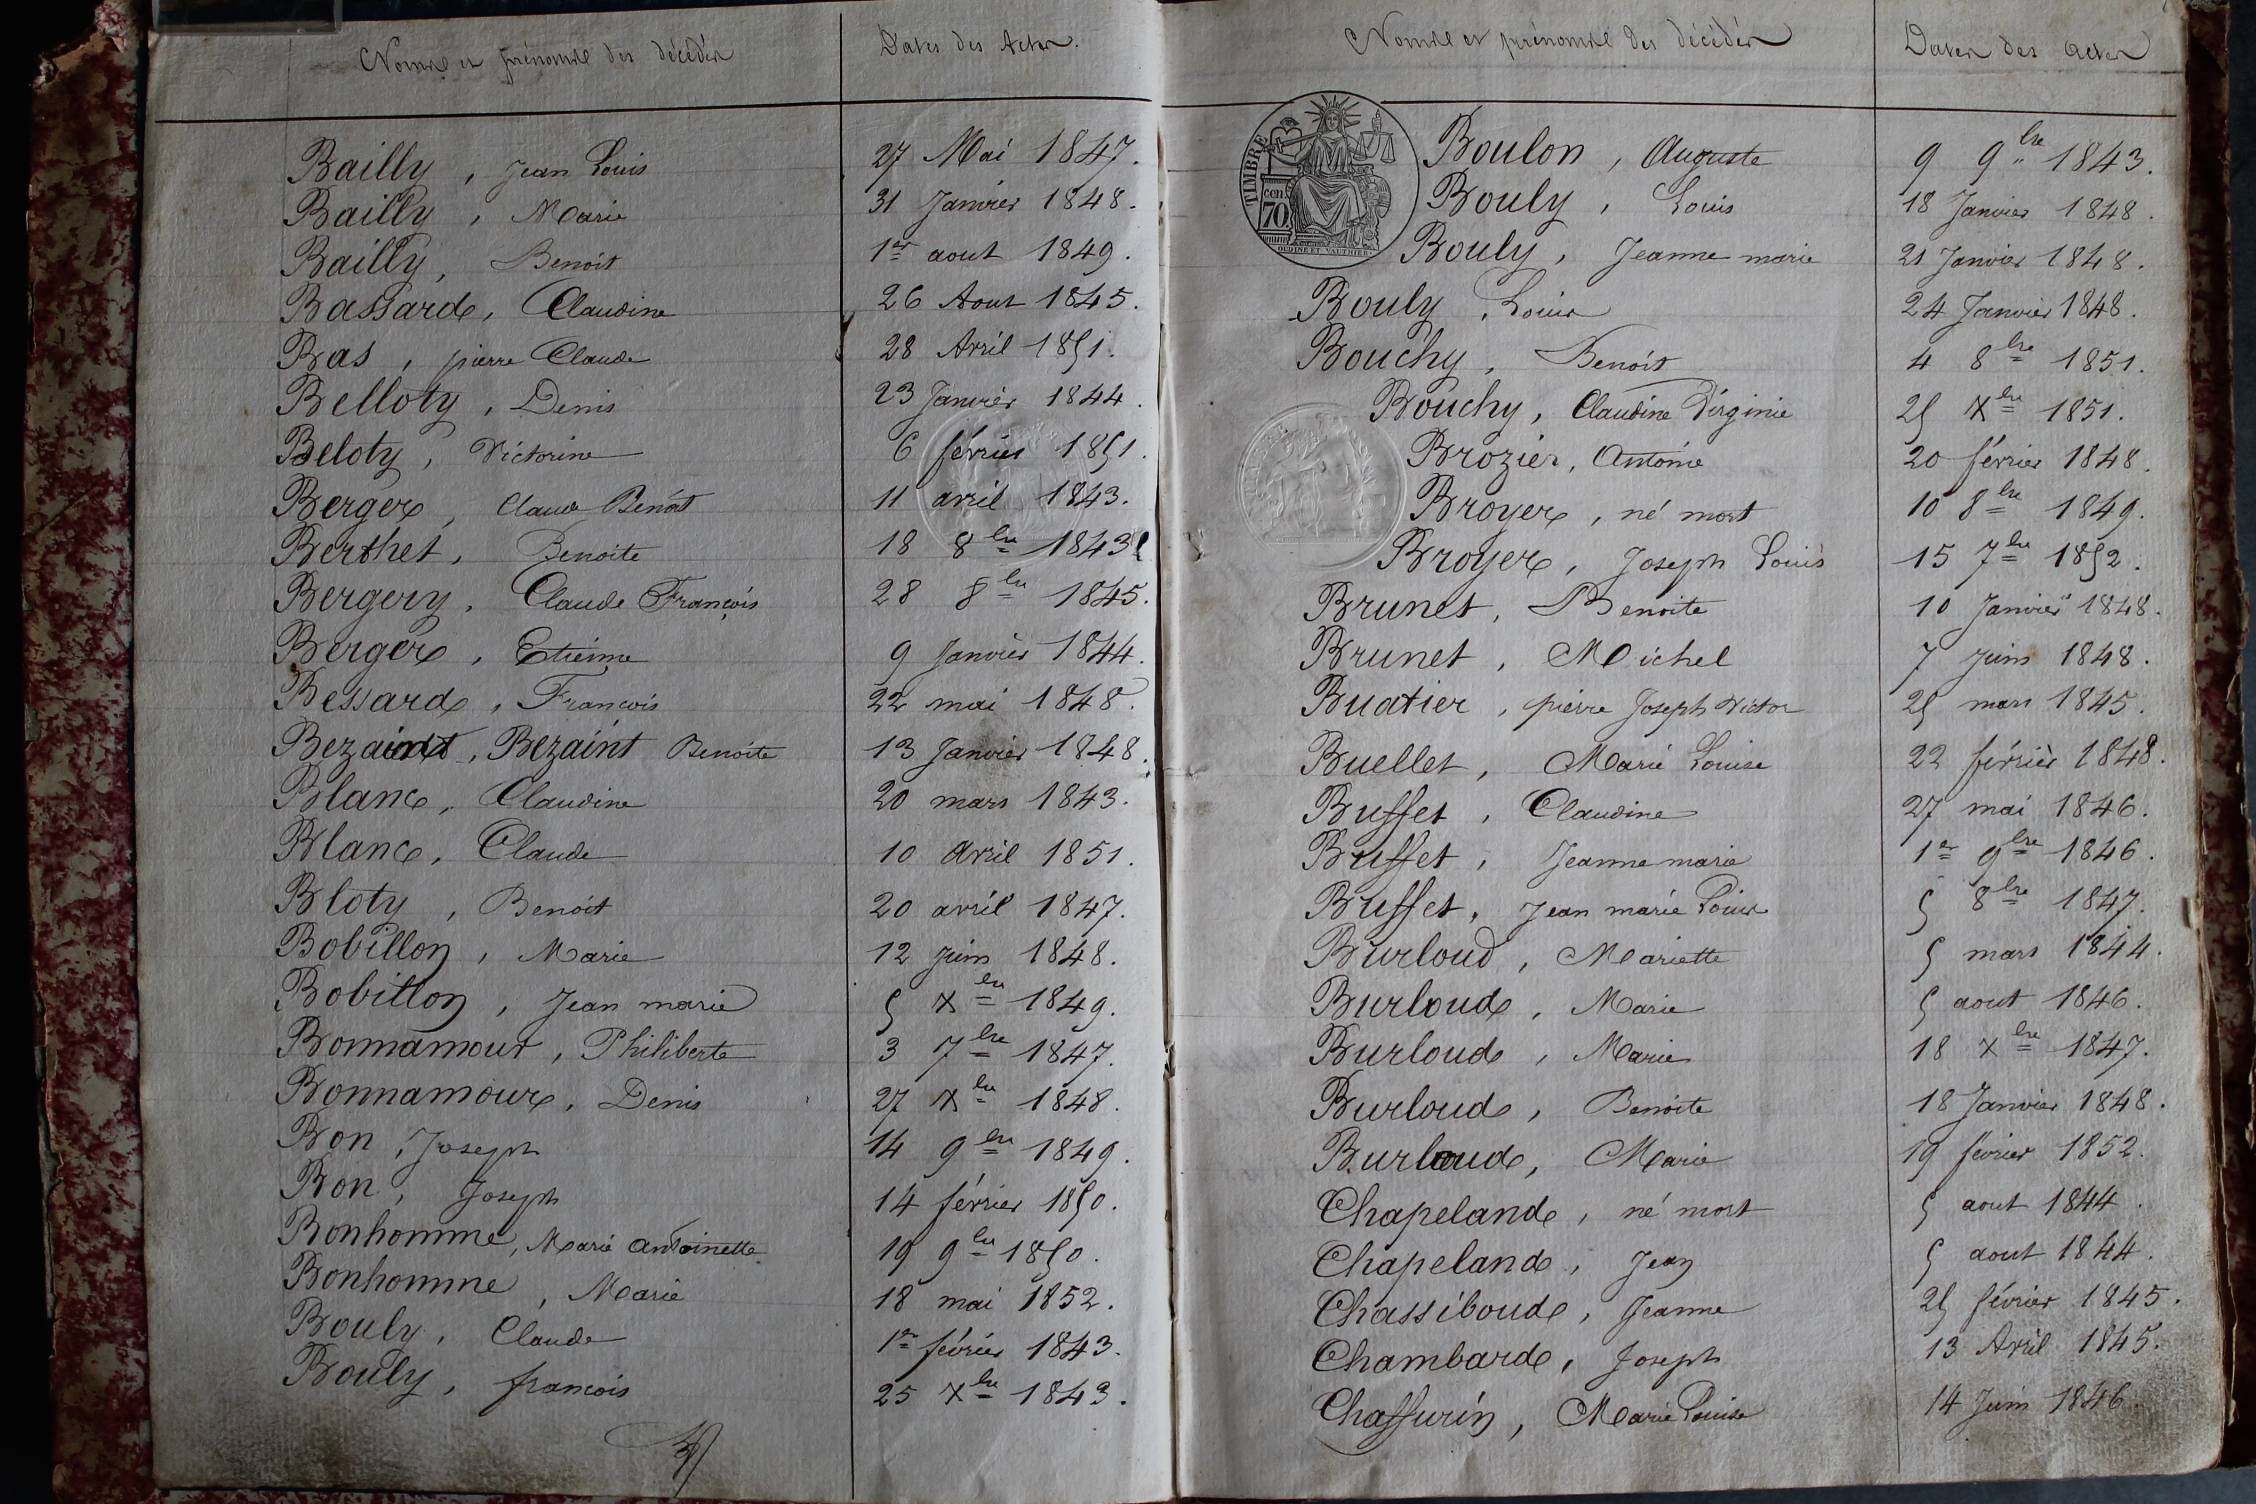 Noms et prénoms des décédés Dates des Actes.
Bailly, Jean Louis 27 Mai 1847.
Bailly, Marie 31 Janvier 1848.
Bailly, Benoit 1er aout 1849.
Bassard, Claudine 26 Aout 1845.
Bas, pierre Claude 28 Avril 1851.
Belloty, Denis 23 Janvier 1844.
Beloty, Victorine 6 février 1851.
Berger, Claude Benoit 11 avril 1843.
Berthet, Benoite 18 8bre 1843
Bergery, Claude François 28 8bre 1845.
Berger, Etienne 9 Janvier 1844.
Bessard, François 22 mai 1848.
Bezaint, Bezaint Benoite 13 Janvier 1848.
Blanc, Claudine 20 mars 1843.
Blanc, Claude 10 avril 1851.
Bloty, Benoit 20 avril 1847.
Bobillon, Marie 12 juin 1848.
Bobillon, Jean marie 5 Xbre 1849.
Bonnamour, Philiberte 3 7bre 1847.
Bonnamour, Denis 27 Xbre 1848.
Bon, Joseph 14 9bre 1849.
Bon, Joseph 14 février 1850.
Bonhomme, Marie Antoinette 19 9bre 1850.
Bonhomme, Marie 18 mai 1852.
Bouly, Claude 1er février 1843.
Bouly, françois 25 Xbre 1843.
Noms et prénoms des décédés Dates des actes
TIMBRE
cen.
70.
OUDINE ET VAUTHIER.
Boulon, Auguste 9 9bre 1843.
Bouly, Louis 18 Janvier 1848.
Bouly, Jeanne marie 21 Janvier 1848.
Bouly, Louis 24 Janvier 1848.
Bouchy, Benoit 4 8bre 1851.
Bouchy, Claudine Virginie 25 Xbre 1851.
Brozier, Antoine 20 février 1848.
Broyer, né mort 10 8bre 1849.
Broyer, Joseph Louis 15 7bre 1852.
Brunet, Benoite 10 Janvier 1848.
Brunet, Michel 7 juin 1848.
Buatier, pierre Joseph Victor 25 mars 1845.
Buellet, Marie Louise 22 février 1848.
Buffet, Claudine 27 mai 1846.
Buffet, Jeanne marie 1er 9bre 1846.
Buffet, Jean marie Louis 5 8bre 1847.
Burloud, Mariette 5 mars 1844.
Burloud, Marie 5 aout 1846.
Burloud, Marie 18 Xbre 1847.
Burloud, Benoite 18 Janvier 1848.
Burloud, Marie 19 février 1852.
Chapeland, né mort 5 aout 1844.
Chapeland, Jean 5 aout 1844.
Chassiboud, Jeanne 25 février 1845.
Chambard, Joseph 13 Avril 1845.
Chaffurin, Marie Louise 14 Juin 1846.